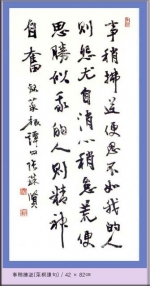 事稍拂逆便思不如我的人
則怨尤自消心稍怠荒便
思勝似我的人則精神
自奮 菜根譚
事稍拂逆(菜根譚句) / 42 × 82cm